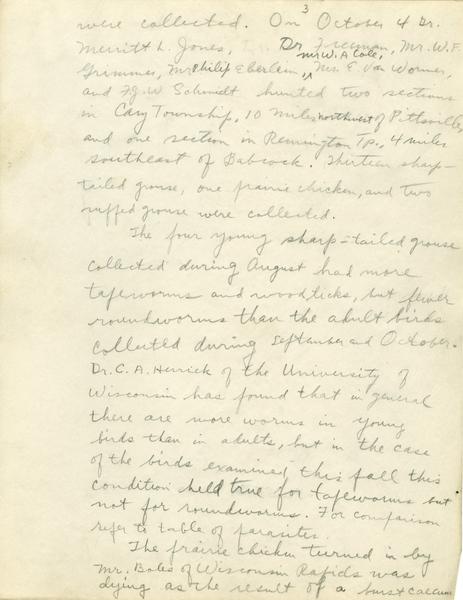 were collected. On 3 October 4 Dr.
Merritt L. Jones, Dr. Freeman, Mr. W. F.
Mr W. A. Cole,
Grimmer, Mr. Philip Eberlein, Mrs. E. Van Wormer,
and F. J. W. Schmidt hunted two sections
in Cary Township, 10 miles northwest of Pittsville,
and one section in Remington Tp., 4 miles
southeast of Babcock. Thirteen sharp-
tailed grouse, one prairie chicken, and two
ruffed grouse were collected.
The four young sharp-tailed grouse
collected during August had more
tapeworms and woodticks, but fewer
roundworms than the adult birds
collected during September and October.
Dr. C. A. Herrick of the University of
Wisconsin has found that in general
there are more worms in young
birds than in adults, but in the case
of the birds examined this fall this
condition held true for tapeworms but
not for roundworms. For comparison
refer to table of parasites.
The prairie chicken turned in by
Mr. Boles of Wisconsin Rapids was
dying as the result of a burst caecum